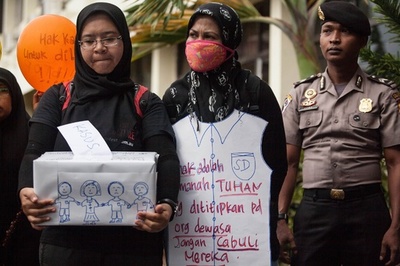 Untuk di
SD
nak adalah
manah TUHAN
yg dititipkan pd
org dewasa
Jangan CABULI
Mereka